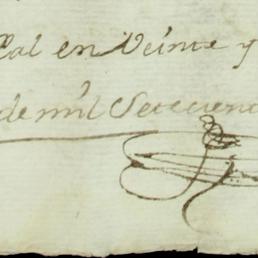 Cal en Veinte y
de mil Setecien